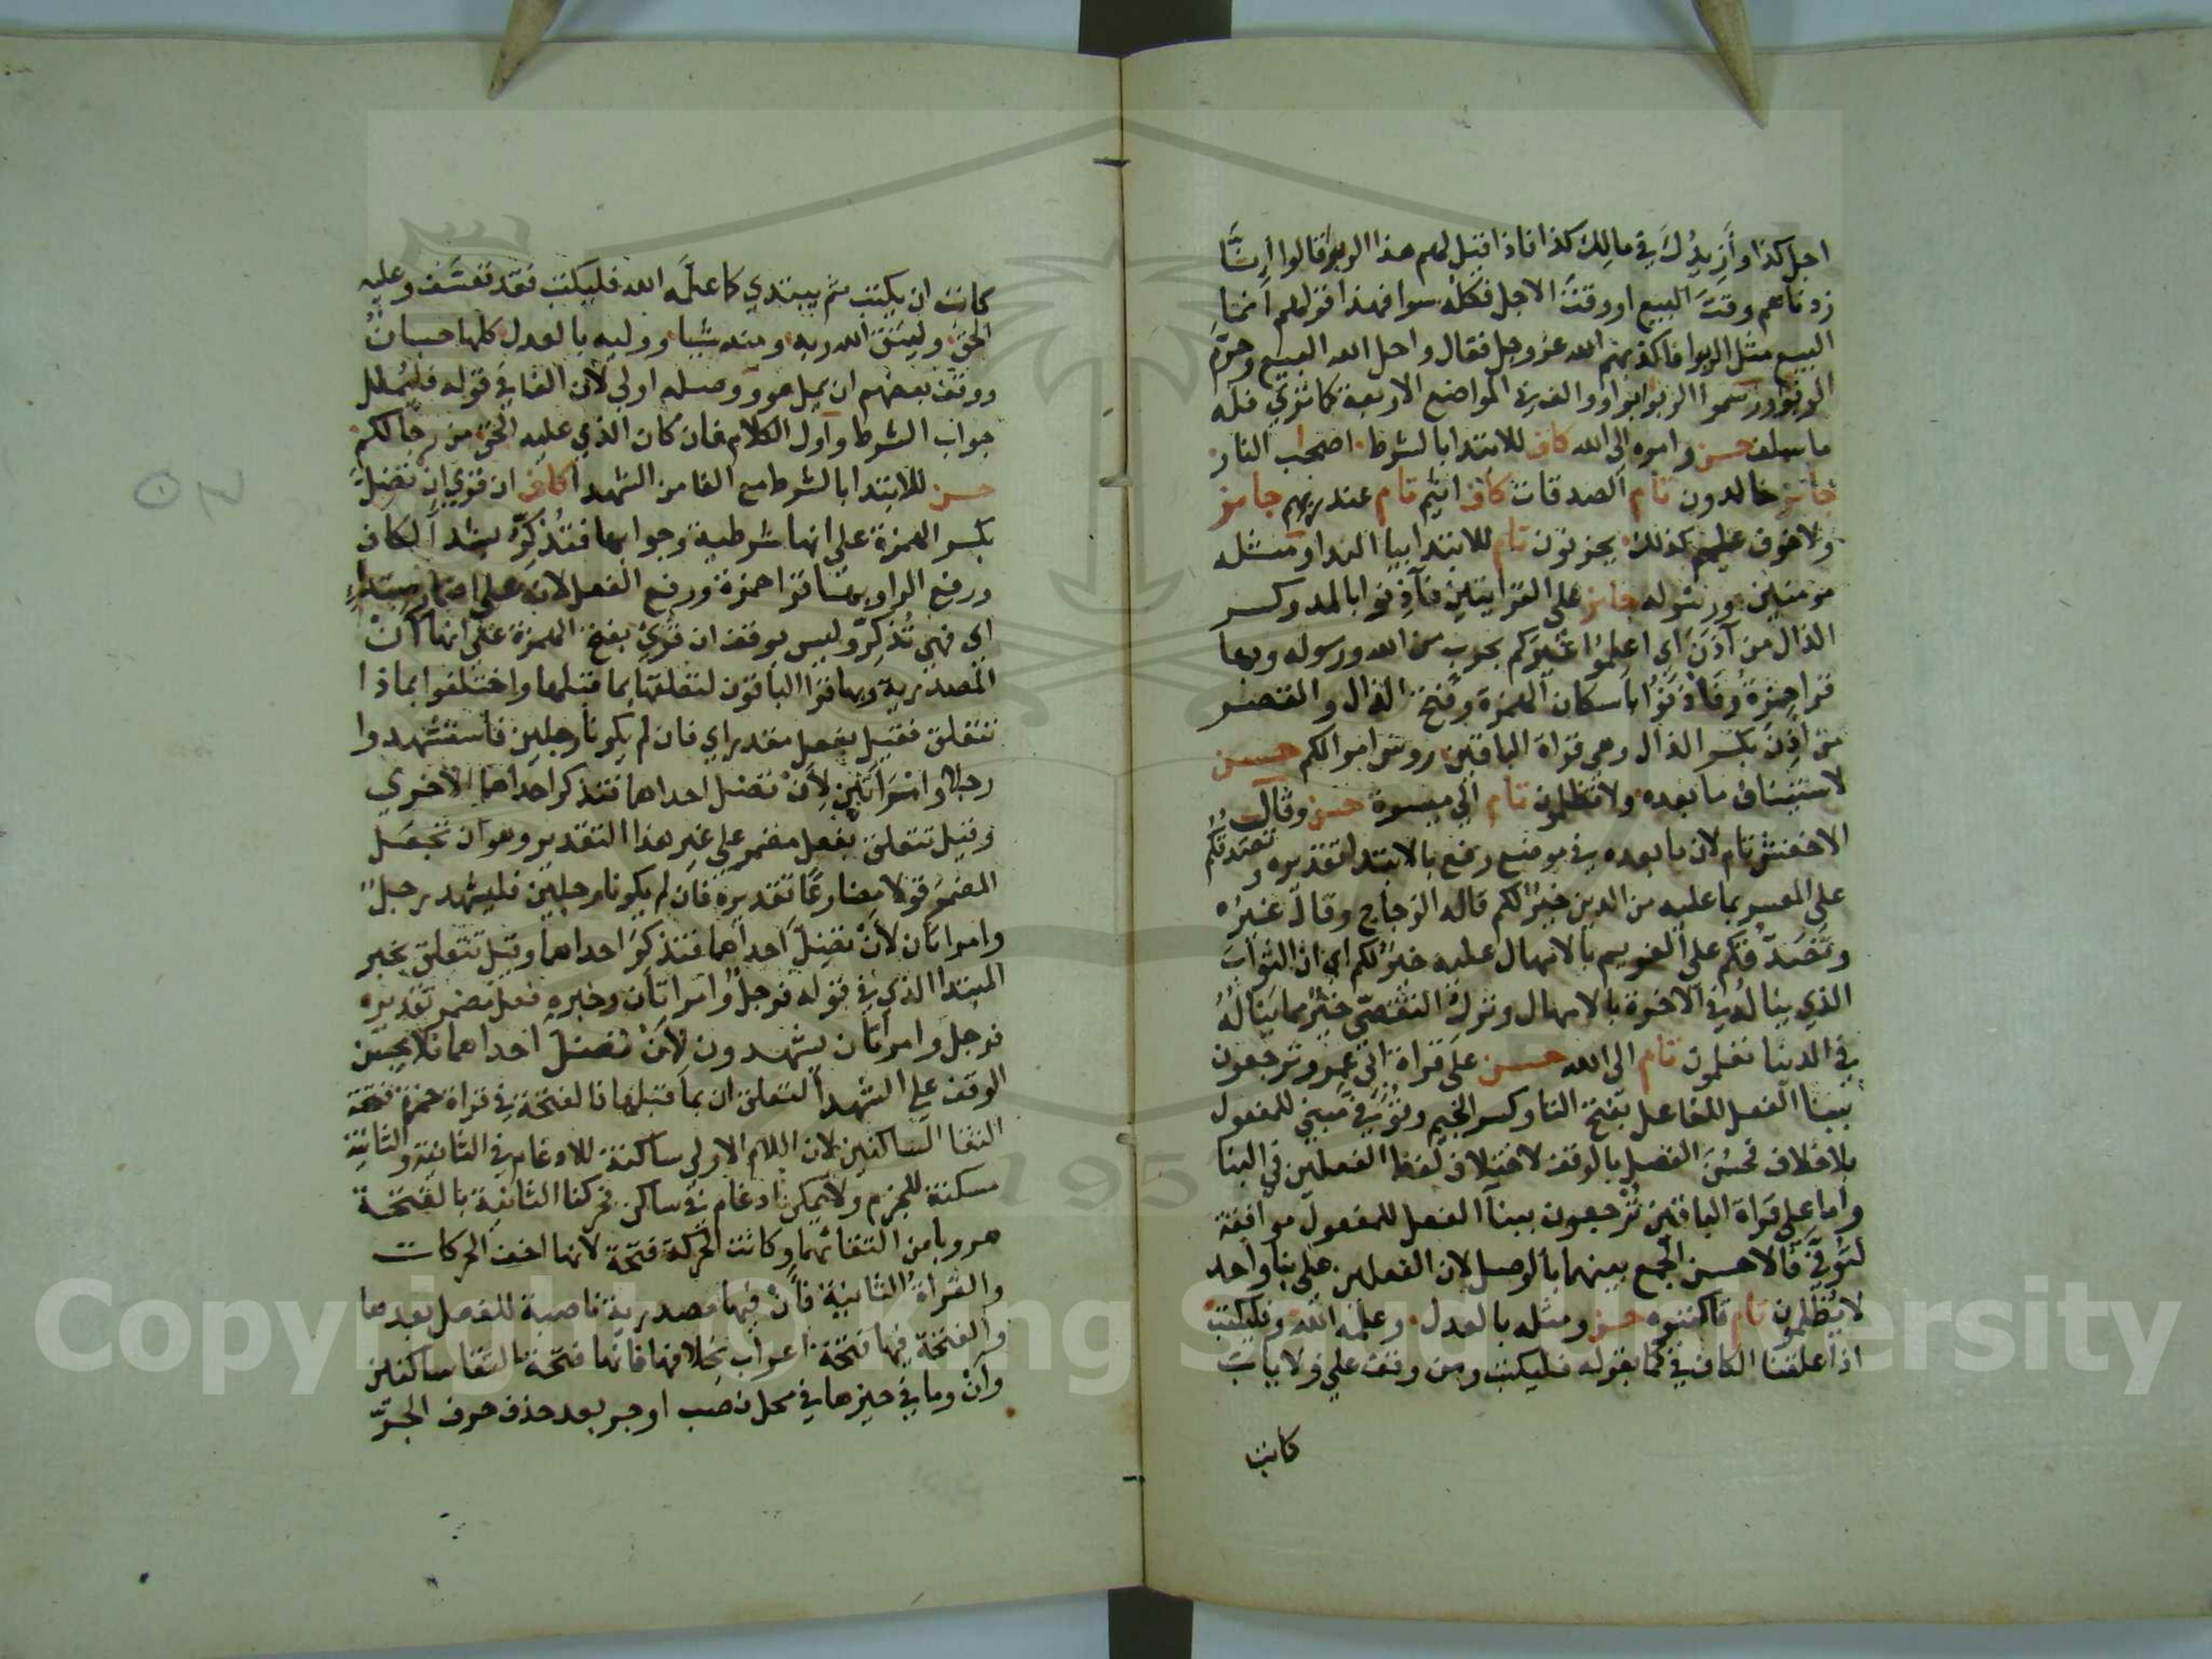 اجل كذا وأزيدُك في مالك كذا فاذا قيل لهم هذا الربوا قالوا إن شا
زدناهم وقت البيع او وقت الاجل فكله سوا فهذا قولهم انما
البيع مثل الربوا فاكذبهم الله عز وجل فقال واحل الله البيع وحرم
الربوا ورسموا الربوا بواو والف في المواضع الاربعة كما ترى فله
ما سلف حسن وامره الى الله كاف للابتدا بالشرط اصحب النار
جائز خالدون تام الصدقات كاف اثيم تام عند ربهم جايز
ولا خوف عليهم كذلك يحزنون تام للابتدا بيا الندا ومثله
مومنين ورسوله جايز على القراتين فآذنوا بالمد وكسر
الذال من آذن اي اعلموا غيركم بحرب من الله ورسوله وبها
قرا حمزة وفأذنوا باسكان الهمزة وفتح الذال والقصر
من أذن بكسر الذال وهي قراة الباقين رؤس اموالكم حسن
لاستيناف ما بعده ولا تظلمون تام الى ميسرة حسن وقال
الاخفش تام لان ما بعده في موضع رفع بالابتدا تقديره وتصدقكم
على المعسر بما عليه من الدين خير لكم قاله الزجاج وقال غيره
وتصدقكم على الغريم بالامهال عليه خير لكم اي ان الثواب
الذي يناله في الاخرة بالامهال وترك التقصي خير مما يناله
في الدنيا تعلمون تام الى الله حسن على قراة ابي عمرو ترجعون
ببنا الفعل للفاعل بفتح التا وكسر الجيم وتوفى مبني للمفعول
بلا خلاف فحسن الفصل بالوقف لاختلاف لفظ الفعلين في البنا
واما على قراة الباقين ترجعون ببنا الفعل للمفعول موافقة
لتوفى فالاحسن الجمع بينهما بالوصل لان الفعلين على بنا واحد
لا يظلمون تام فاكتبوه حسن ومثله بالعدل وعلمه الله وفليكتب
اذا علقنا الكاف في كما بقوله فليكتب ومن وقف على ولا ياب
كاتب
كاتب ان يكتب ثم يبتدي كما علمه الله فليكتب فقد تعسف وعليه
الحق وليتق الله ربه ومنه شيا ووليه بالعدل كلها حسان
ووقف بعضهم ان يمل هو ووصله اولى لان الفا في قوله فليملل
جواب الشرط واول الكلام فان كان الذي عليه الحق من رجالكم
حسن للابتدا بالشرط مع الفا من الشهدا كاف ان قري ان تضل
بكسر الهمزة على انها شرطية وجوابها فتذكر بشد الكاف
ورفع الرا وبها قرا حمزة ورفع الفعل لانه على اضمار مبتدا
اي فهي تذكر وليس بوقف ان قري بفتح الهمزة على انها أن
المصدرية وبها قرا الباقون لتعلقها بما قبلها واختلفوا بماذا
تتعلق فقيل بفعل مقدر اي فان لم يكونا رجلين فاستشهدوا
رجلا وامراتين لأن تضل احداهما فتذكر احداهما الاخرى
وقيل تتعلق بفعل مضمر على غير هذا التقدير وهو ان تجعل
المضمر قولا مضارعا تقديره فان لم يكونا رجلين فليشهد رجل
وامراتان لأن تضل احداهما فتذكر احداهما وقيل تتعلق بخبر
المبتدا الذي في قوله فرجل وامراتان وخبره فعل مضمر تقديره
فرجل وامراتان يشهدون لأن تضل احداهما فلا يحسن
الوقف على الشهدا لتعلق ان بما قبلها فالفتحة في قراة حمزة فتحة
التقا الساكنين لان اللام الاولى ساكنة للادغام في الثانية والثانية
مسكنة للجزم ولا يمكن ادغام في ساكن فحركنا الثانية بالفتحة
هروبا من التقائهما وكانت الحركة فتحة لانها اخف الحركات
والقراة الثانية فأن فيها مصدرية ناصبة للفعل بعدها
والفتحة فيها فتحة اعراب بخلافها فانها فتحة التقا ساكنين
وأن وما في حيزها في محل نصب او جر بعد حذف حرف الجر
Copyright © King Saud University
1957